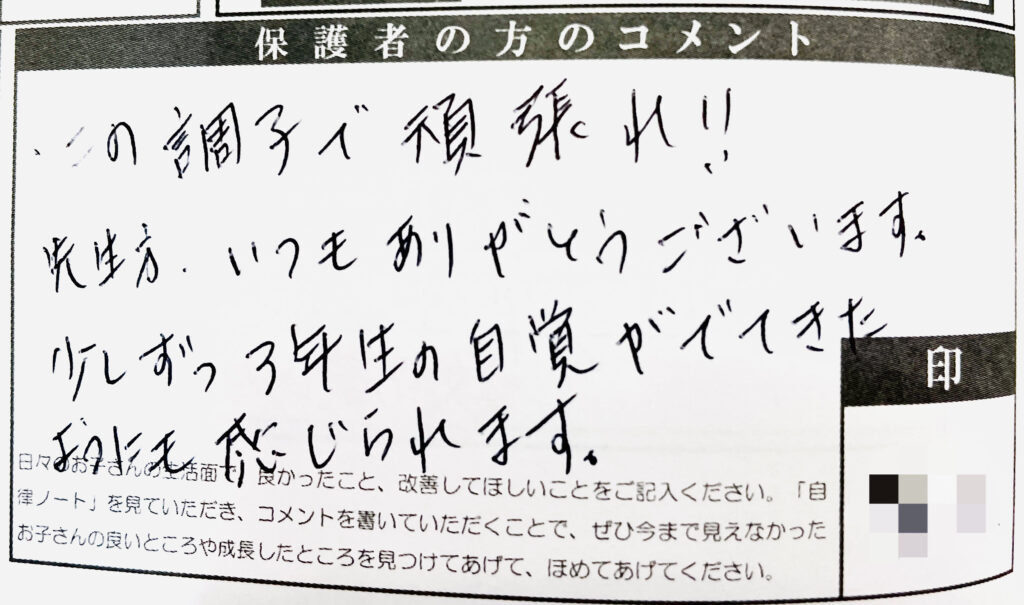 保護者の方のコメント
この調子で頑張れ!!
先生方.いつもありがとうございます。
少しずつ3年生の自覚がでてきた
ようにも感じられます。
印
日々のお子さんの生活面で、良かったこと、改善してほしいことをご記入ください。「自
律ノート」を見ていただき、コメントを書いていただくことで、ぜひ今まで見えなかった
お子さんの良いところや成長したところを見つけてあげて、ほめてあげてください。